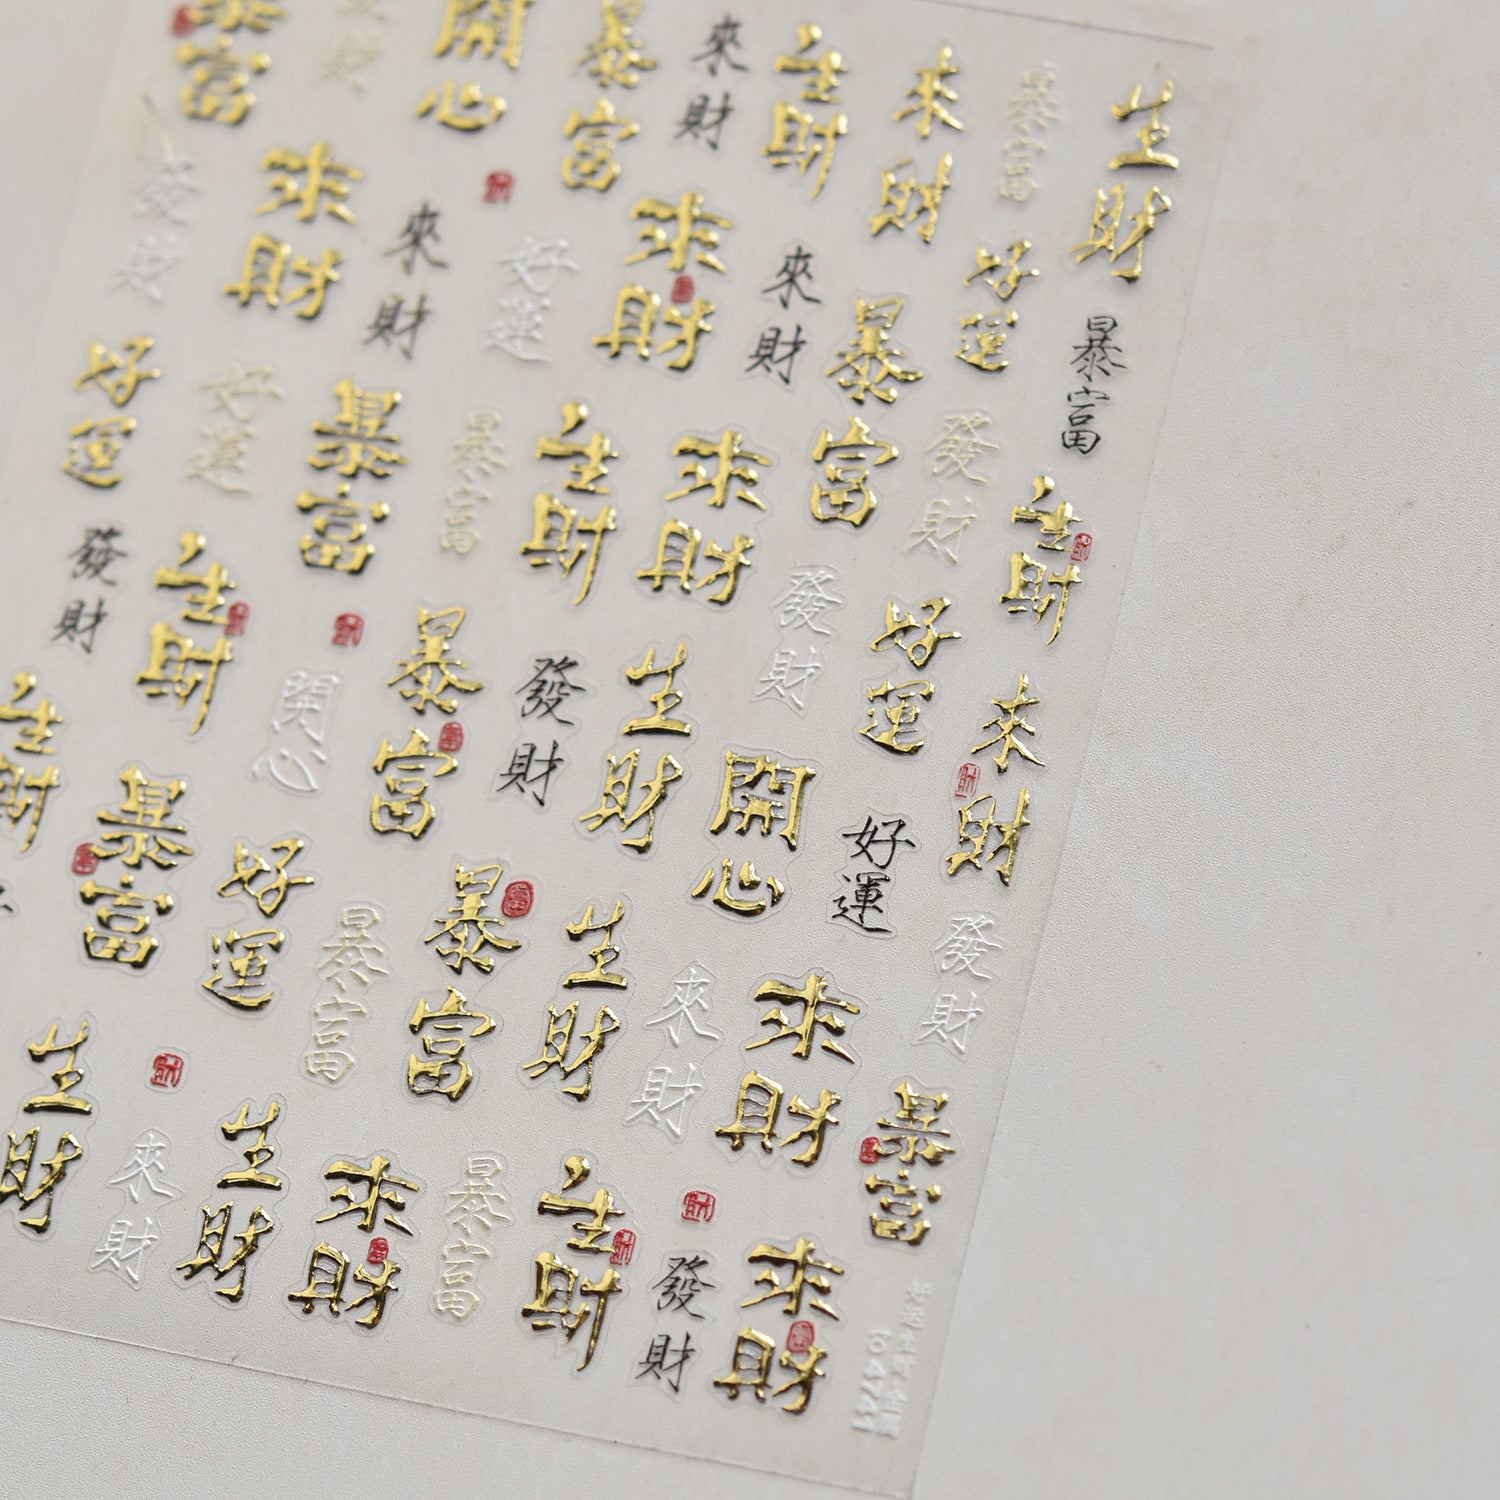 暴富
開心
暴富
來財
生財
來財
暴富
生財
發財
來財
來財
好運
來財
來財
暴富
好運
暴富
好運
好運
暴富
暴富
生財
來財
暴富
發財
生財
發財
生財
暴富
發財
生財
發財
好運
來財
生財
暴富
好運
開心
暴富
生財
開心
好運
發財
生財
來財
生財
來財
暴富
生財
來財
暴富
來財
暴富
生財
發財
來財